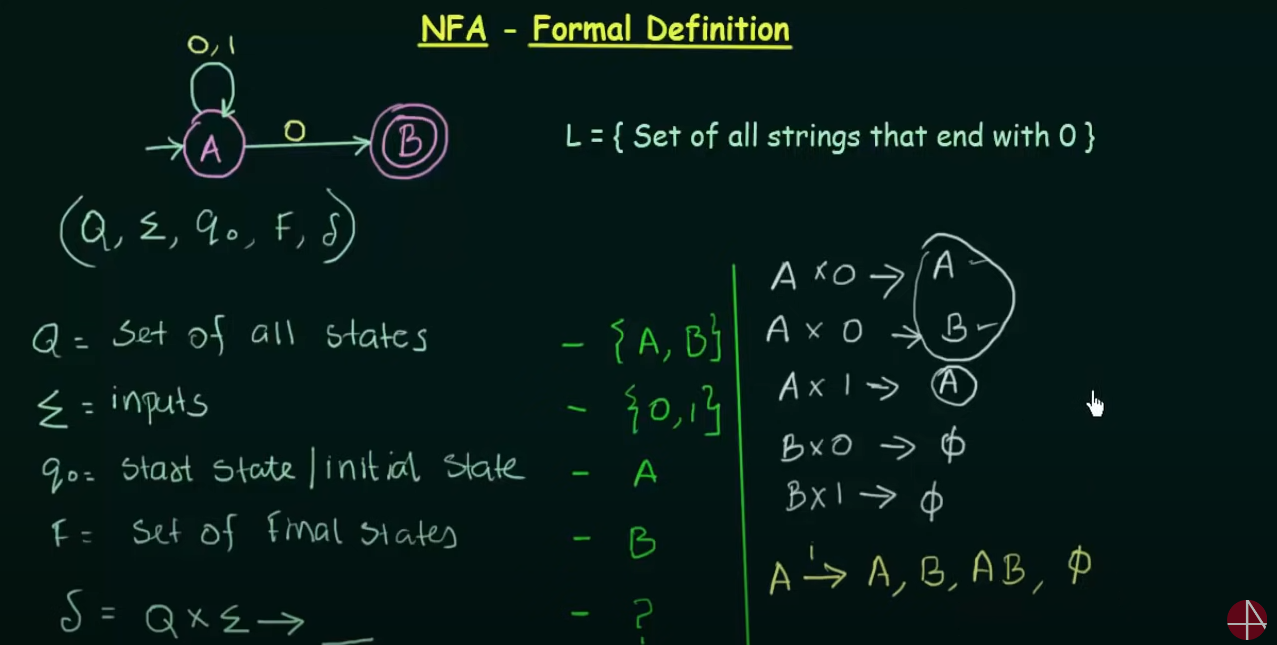 NFA - Formal Definition
0,1
A
0
B
L = { Set of all strings that end with 0 }
(Q, Σ, q₀, F, δ)
Q = Set of all states - {A, B}
Σ = inputs - {0,1}
q₀= start state/initial state - A
F = set of final states - B
δ = Q × Σ → _ - ?
A × 0 → A
A × 0 → B
A × 1 → A
B × 0 → ϕ
B × 1 → ϕ
A →¹ A, B, AB, ϕ